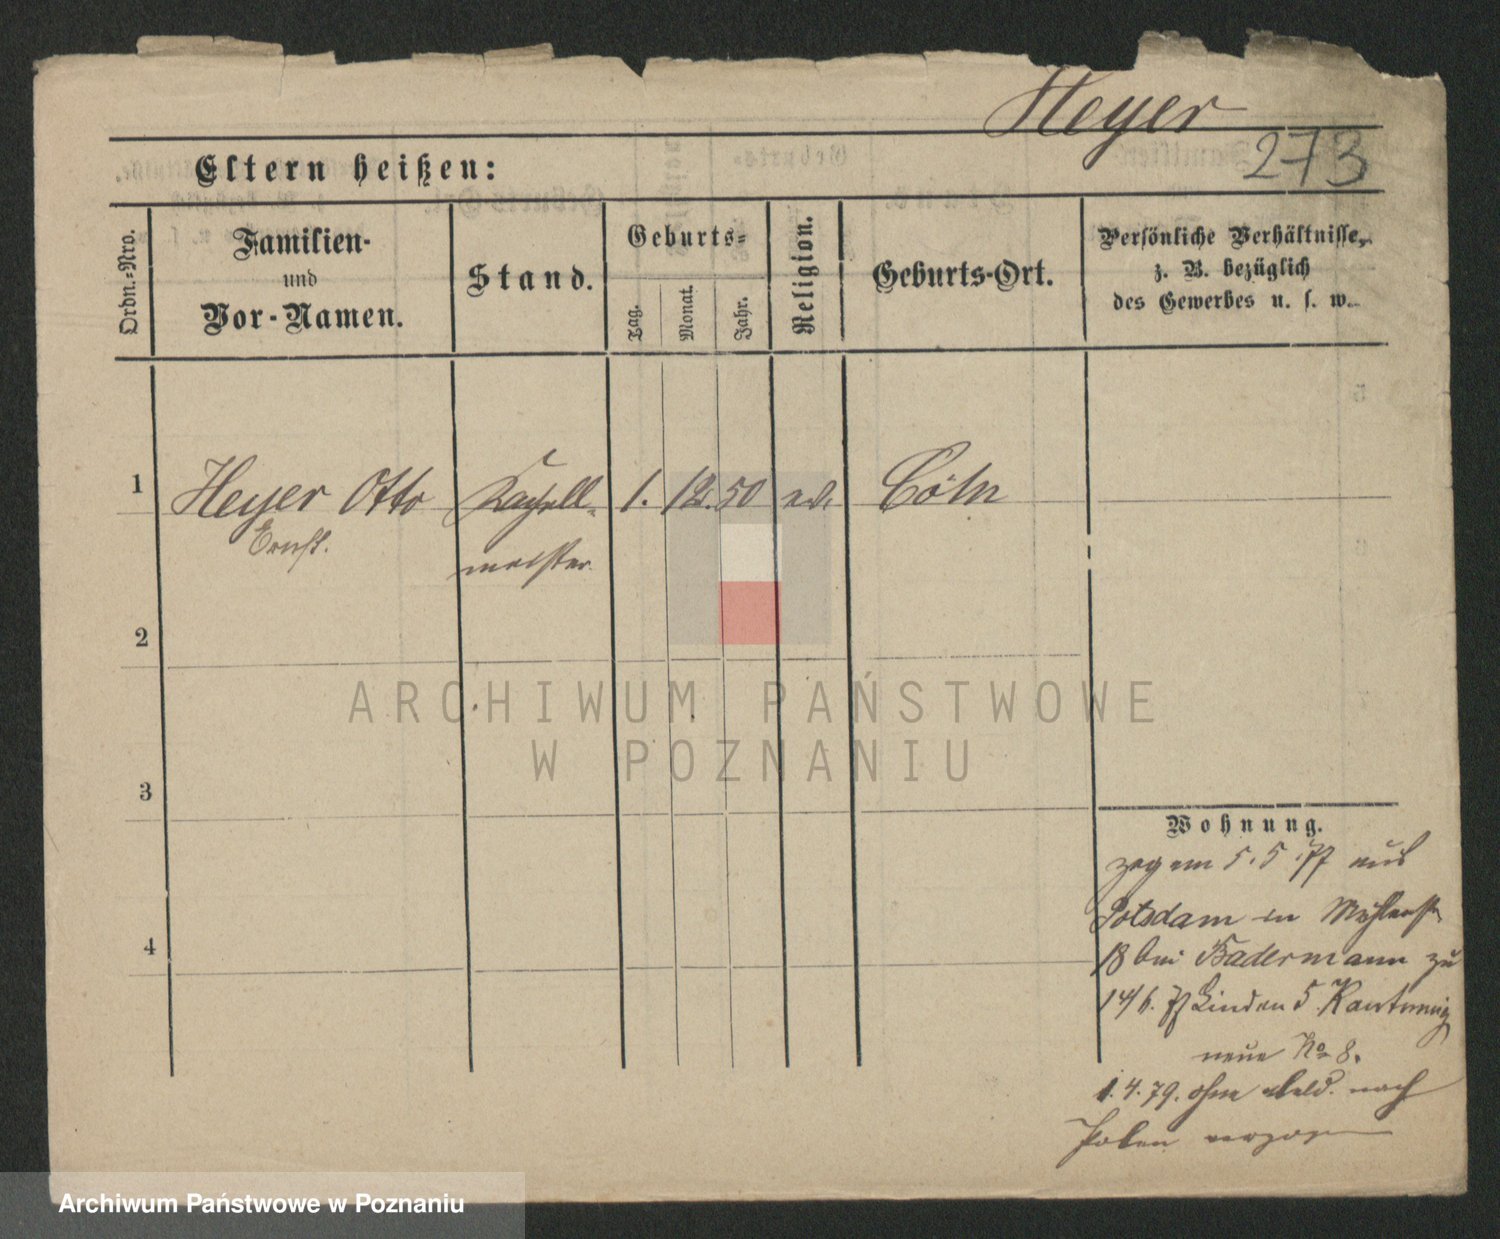 Heyer
273
Eltern heißen:
Ordn.-Nro.
Familien-
und
Vor-Namen.
Stand.
Geburts-
Tag.
Monat.
Jahr.
Religion.
Geburts-Ort.
Persönliche Verhältnisse,
z. B. bezüglich
des Gewerbes u. s. w.
1 Heyer Otto Kapell- 1. 12. 50 ev. Cöln
Ernst. meister
2
3
4
Wohnung.
zog am 5. 5. 77 aus
Potsdam in Mühlenst.
18 bei Badermann zu
14/6. 77 Linden 5
neue No 8.
1. 4. 79. ohne Meld. nach
verzogen
ARCHIWUM PAŃSTWOWE
W POZNANIU
Archiwum Państwowe w Poznaniu